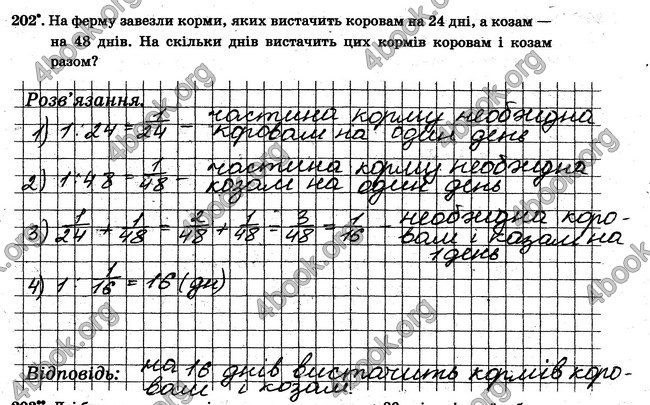 202°. На ферму завезли корми, яких вистачить коровам на 24 дні, а козам —
на 48 днів. На скільки днів вистачить цих кормів коровам і козам
разом?
Розв'язання.
1) 1:24 = 1/24 – частина корму необхідна
коровам на один день
2) 1:48 = 1/48 – частина корму необхідна
козам на один день
3) 1/24 + 1/48 = 2/48 + 1/48 = 3/48 = 1/16 – необхідна коро-
вам і козам на
1 день
4) 1 : 1/16 = 16 (дн)
Відповідь: на 16 днів вистачить кормів коро-
вам і козам.
4book.org